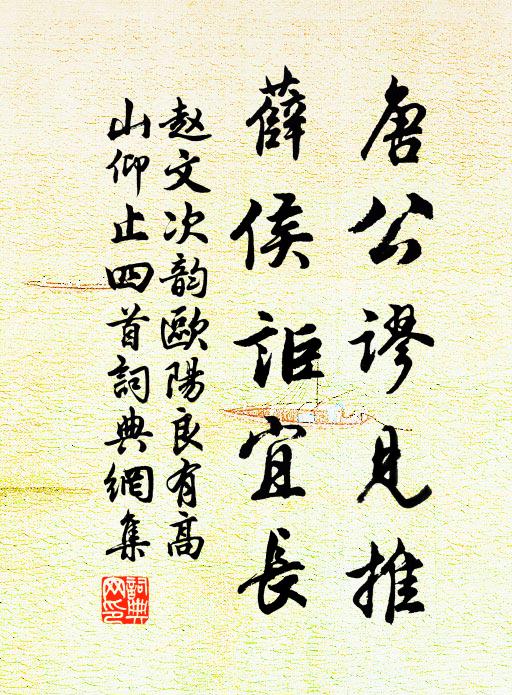 唐公谬見推
薛侯詎宜長
赵文次韵歐陽良有高
山仰止四首詞典網集